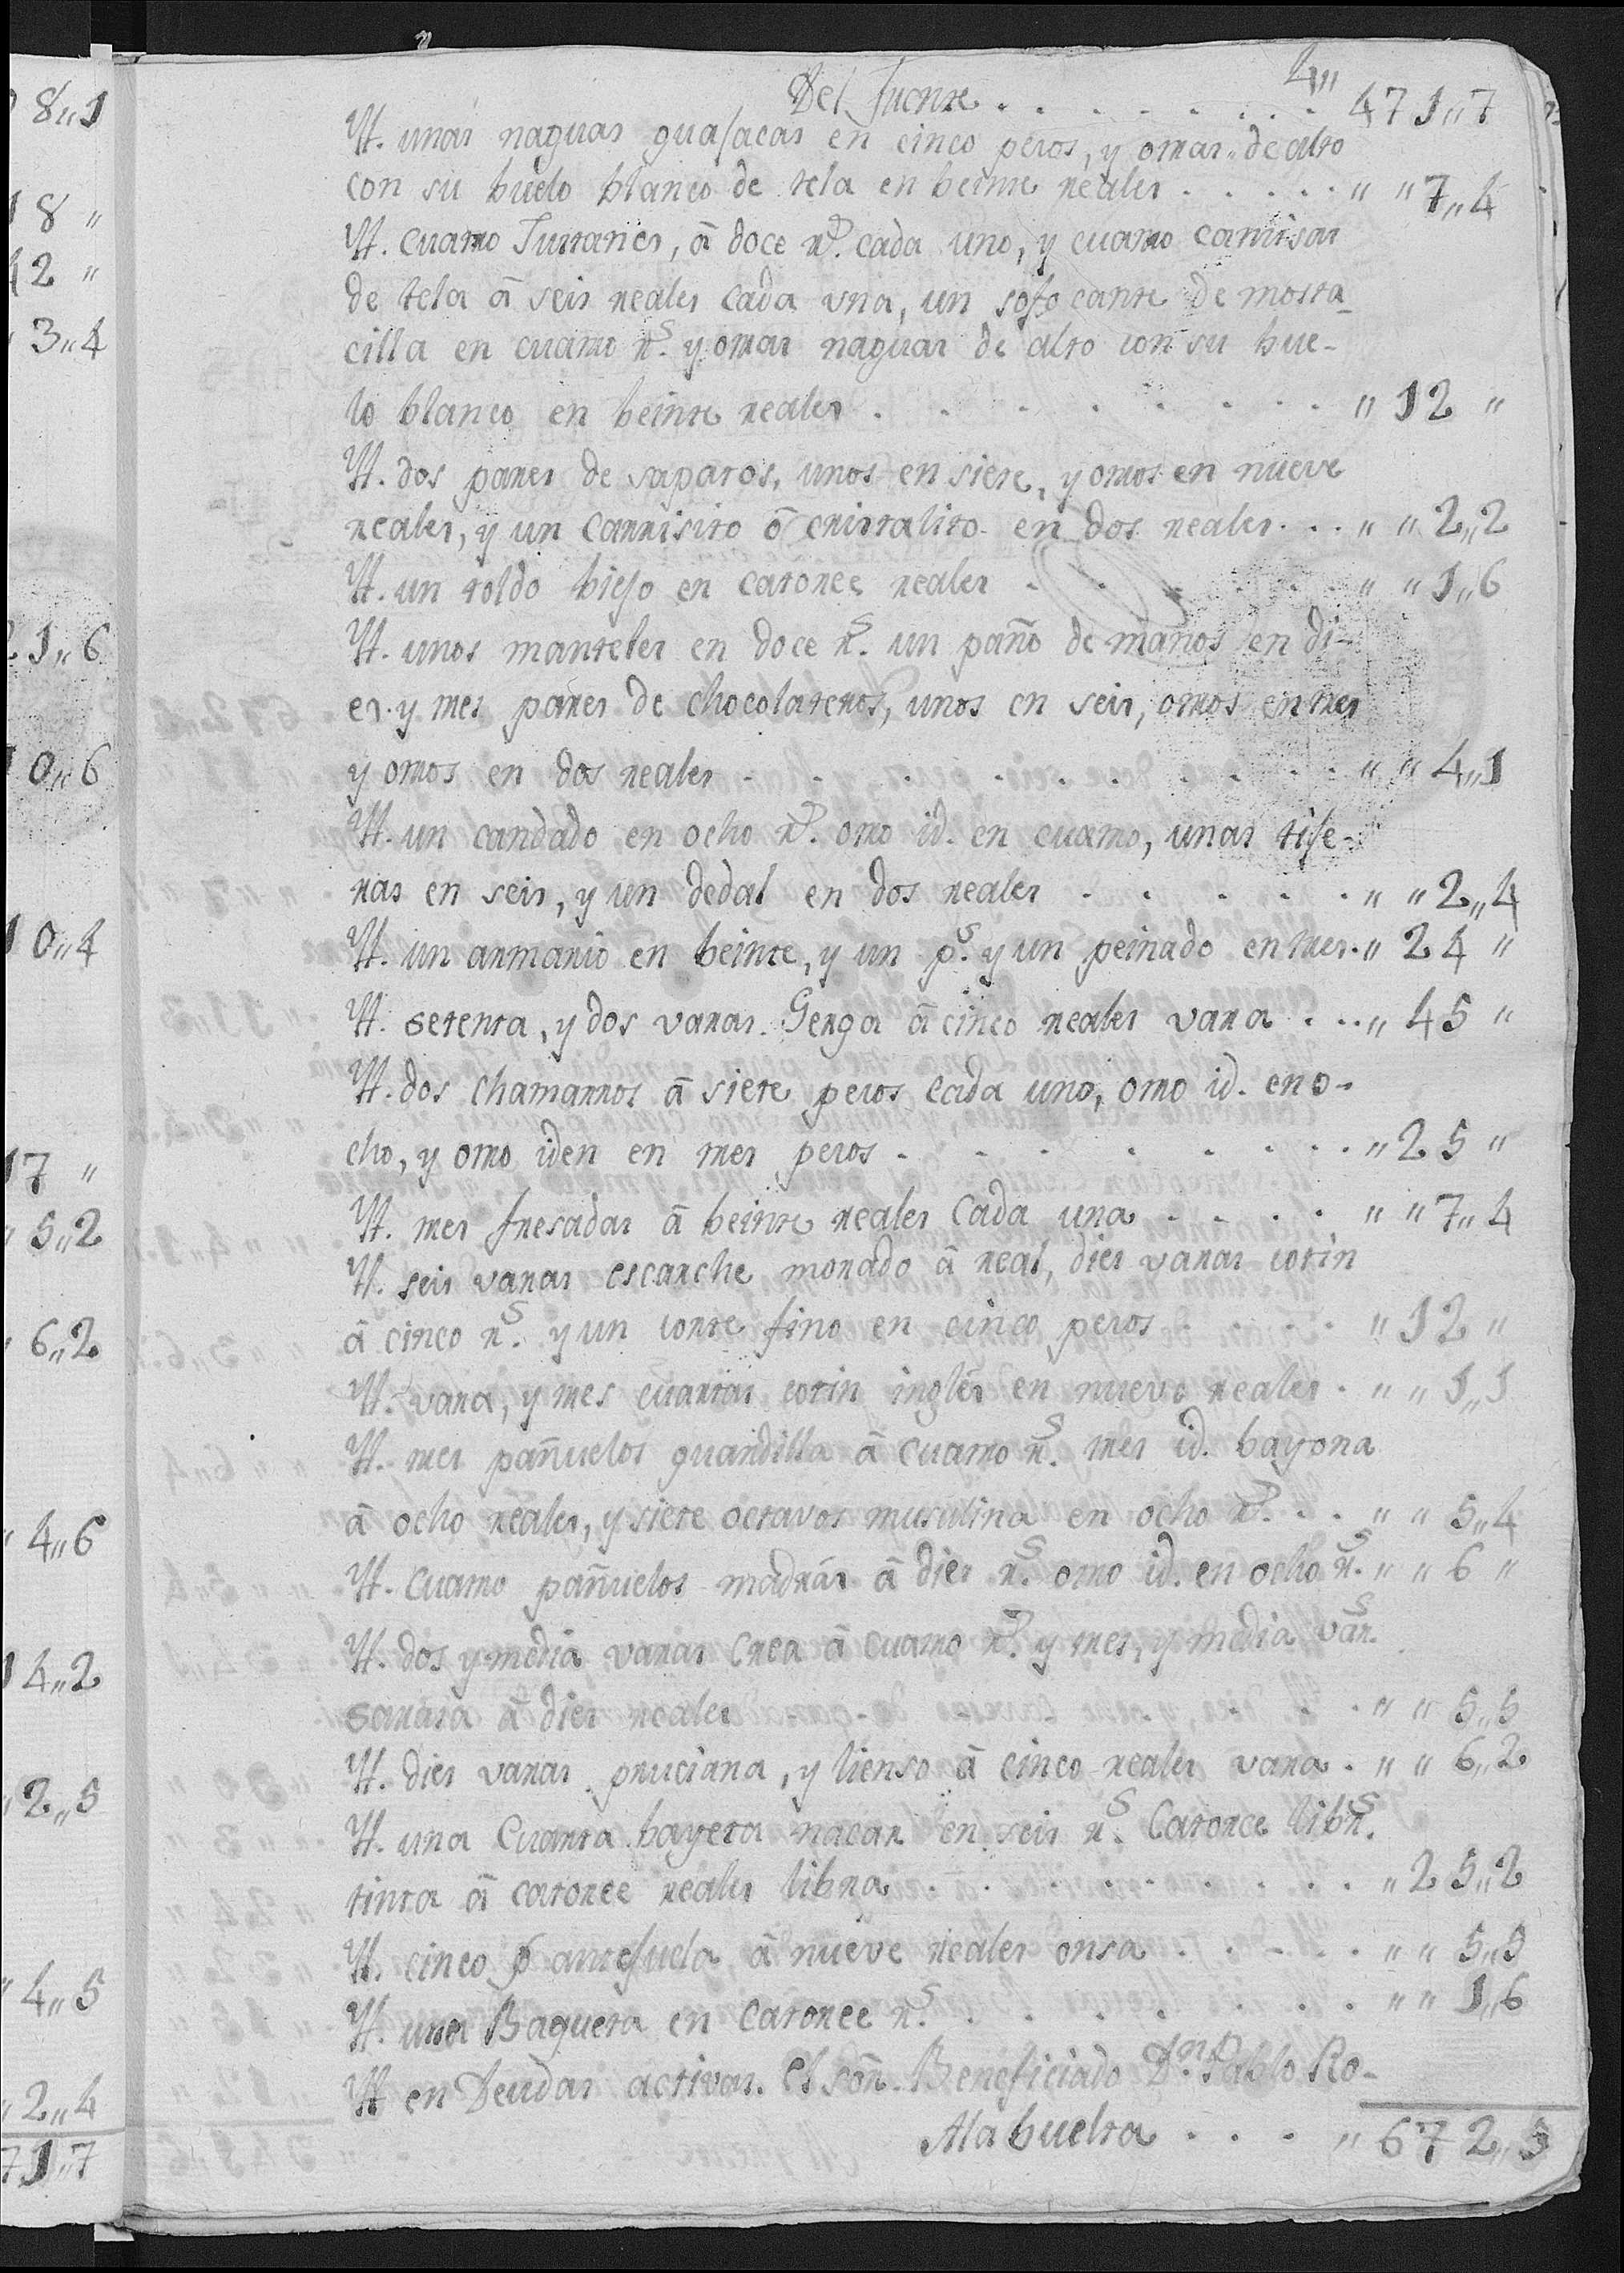 4,,
Del frente . . . . . . . . 471,,7
Yt. unas naguas guajacas en cinco pesos, y otras de alto
con su buelo blanco de tela en beinte reales . . . . . ,, ,, 7,,4
Yt. cuatro Turranes, â doce rs. cada uno, y cuatro camisas
de tela â seis reales cada una, un sofocante de mosta-
cilla en cuatro rs. y otras naguas de alto con su bue-
lo blanco en beinte reales . . . . . . . . ,, 12 ,,
Yt. dos pares de sapatos, unos en siete, y otros en nueve
reales, y un carrisito ô cristalito en dos reales . . . ,, ,, 2,,2
Yt. un toldo biejo en catorce reales . . . . . ,, ,, 1,,6
Yt. unos manteles en doce rs. un paño de manos en di-
es. y tres pares de chocolateros, unos en seis, otros en tres
y otros en dos reales . . . . . . . . . ,, ,, 4,,1
Yt. un candado en ocho rs. otro id. en cuatro, unas tije-
ras en seis, y un dedal en dos reales . . . . . ,, ,, 2,,4
Yt. un armario en beinte, y un ps. y un peinado en tres. ,, 24 ,,
Yt. setenta, y dos varas Gerga â cinco reales vara . . . ,, 45 ,,
Yt. dos chamarros â siete pesos cada uno, otro id. en o-
cho, y otro iden en tres pesos . . . . . . . . ,, 25 ,,
Yt. tres fresadas â beinte reales cada una . . . . ,, ,, 7,,4
Yt. seis varas escarche morado â real, dies varas cotin
â cinco rs. y un corte fino en cinco pesos . . . . ,, 12 ,,
Yt. vara, y tres cuartas cotin inglés en nueve reales . ,, ,, 1,,1
Yt. tres pañuelos guardilla â cuatro rs. tres id. bayona
â ocho reales, y siete octavos musulina en ocho rs. . . ,, ,, 5,,4
Yt. cuatro pañuelos madrás â dies rs. otro id. en ocho rs. ,, ,, 6 ,,
Yt. dos y media varas crea â cuatro rs. y tres, y media vars.
saraza â dies reales . . . . . . . . ,, ,, 5,,5
Yt. dies varas pruciana, y lienso â cinco reales vara . ,, ,, 6,,2
Yt. una cuarta bayeta nacar en seis rs. catorce librs.
tinta â catorce reales libra . . . . . . . . ,, 25,,2
Yt. cinco antejuela â nueve reales onsa . . . . . ,, ,, 5,,5
Yt. una Baqueta en catorce rs. . . . . . . . ,, ,, 1,,6
Yt en Deudas activas. el Sôr. Beneficiado Dn. Pablo Ro-
Ala buelta . . . ,, 672,,3
8,,1
8 ,,
2 ,,
3,,4
21,,6
10,,6
10,,4
17 ,,
5,,2
6,,2
4,,6
14,,2
2,,5
4,,5
2,,4
71,,7